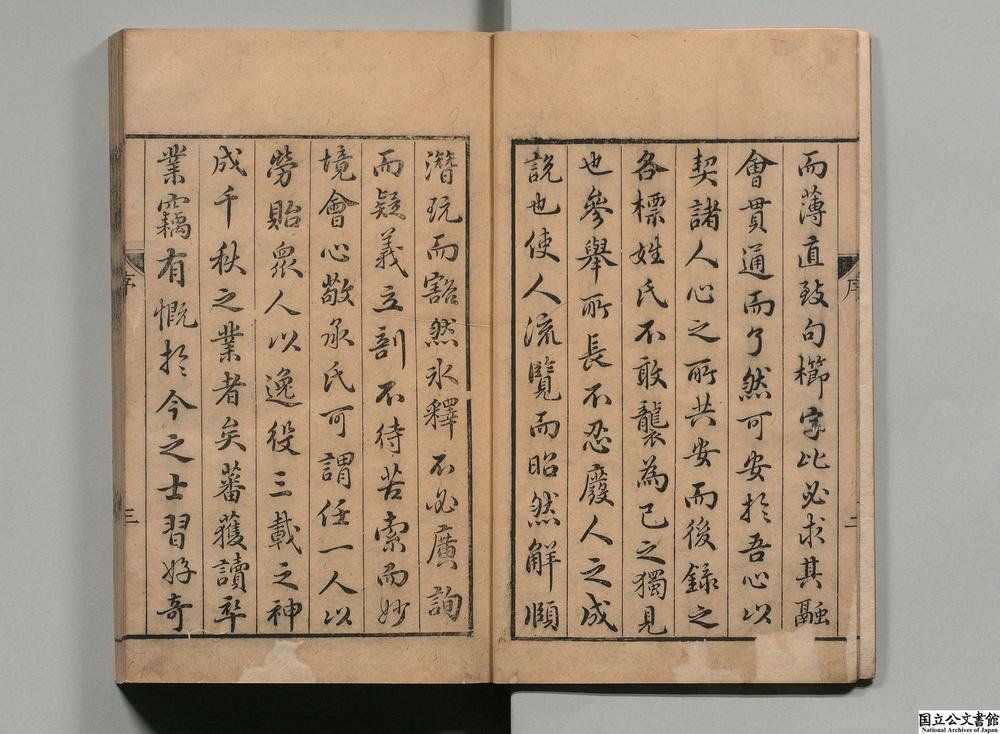 而薄直致句櫛字比必求其融
會貫通而了然可安於吾心以
契諸人心之所共安而後錄之
各標姓氏不敢襲為己之獨見
也參舉所長不忍廢人之成
說也使人流覽而昭然解頤
序
二
潛玩而豁然冰釋不必廣詢
而疑義立剖不待苦索而妙
境會心敬承氏可謂任一人以
勞貽眾人以逸役三載之神
成千秋之業者矣蕃獲讀卒
業竊有慨於今之士習好奇
序
三
国立公文書館
National Archives of Japan